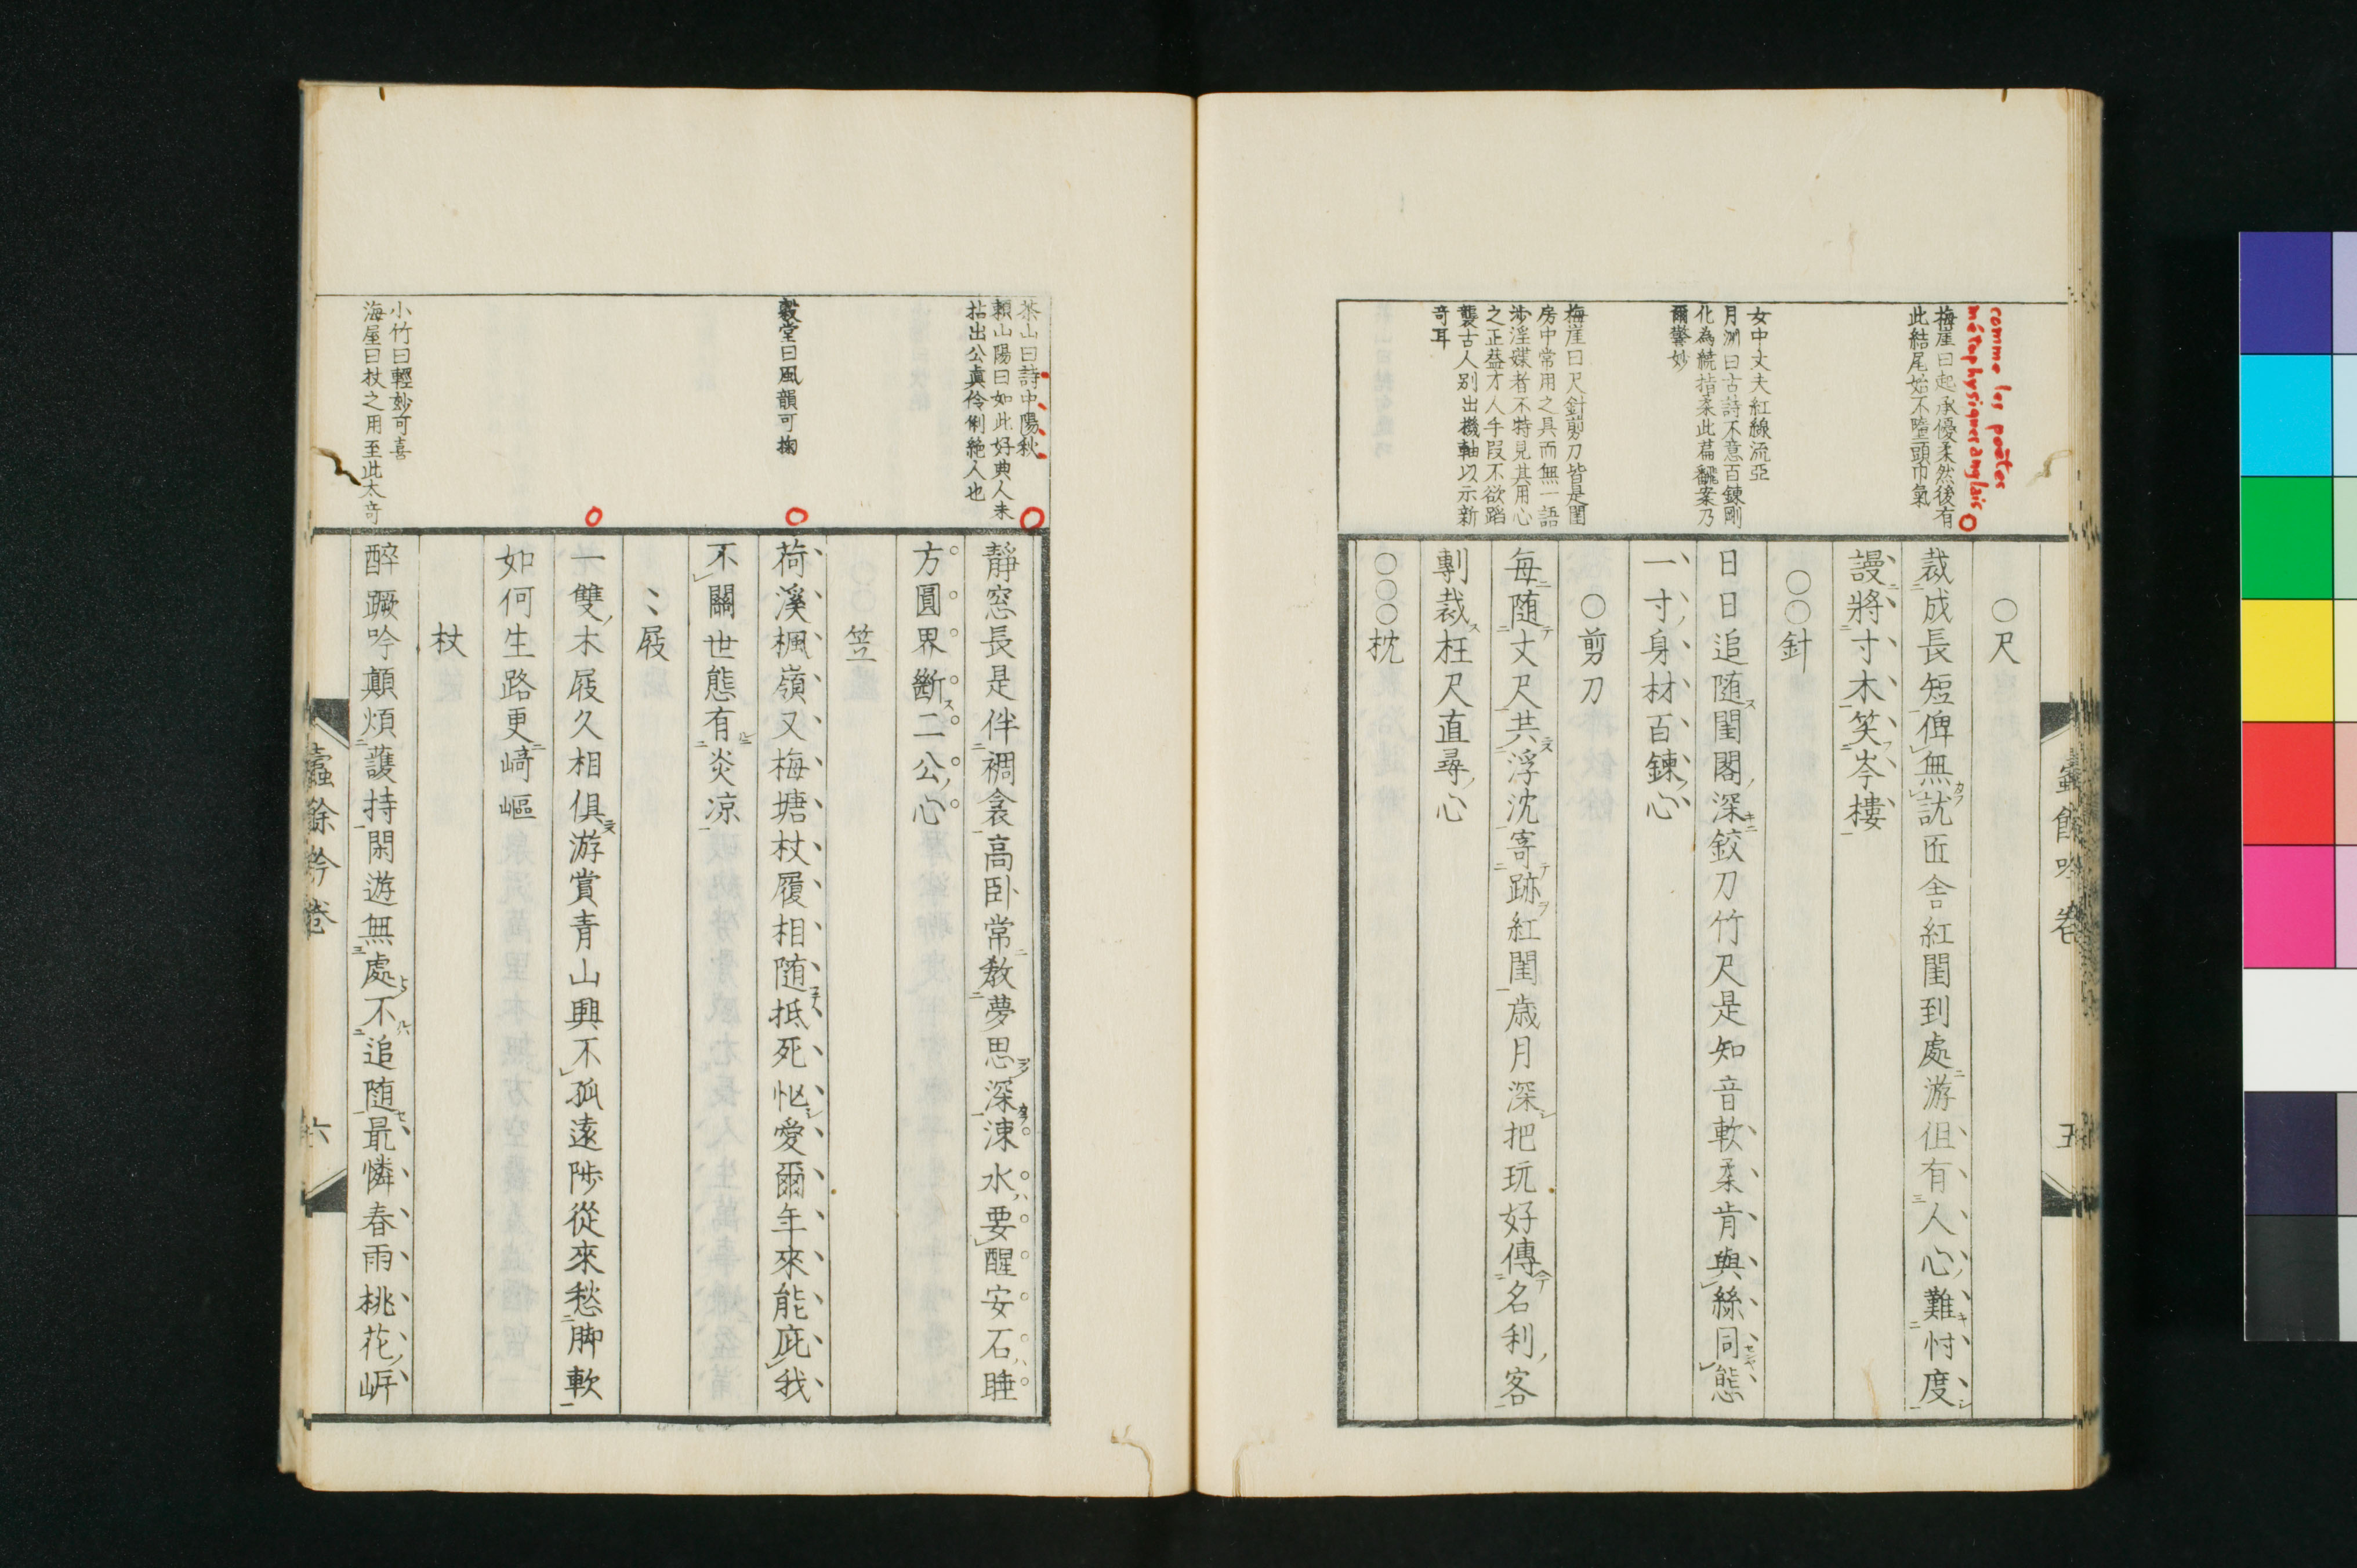 comme les poètes
métaphysiques anglais
梅崖曰起承優柔然後有
此結尾始不墮頭巾氣
女中丈夫紅線流亞
月洲曰古詩不意百鍊剛
化為繞指柔此篇飜案乃
爾警妙
梅崖曰尺針剪刀皆是閨
房中常用之具而無一語
渉淫媟者不特見其用心
之正益才人手段不欲蹈
襲古人別出機軸以示新
奇耳
○尺
裁成長短俾無訧匝舍紅閨到處游但有人心難忖度
謾將寸木笑岑樓
○○針
日日追随閨閣深鉸刀竹尺是知音軟柔肯與絲同態
一寸身材百鍊心
○剪刀
毎随丈尺共浮沈寄跡紅閨歳月深把玩好傳名利客
剸裁枉尺直尋心
○○○枕
蠧餘吟卷
五
茶山曰詩中陽秋
賴山陽曰如此好典人未
拈出公眞伶俐絶人也
穀堂曰風韻可掬
小竹曰輕妙可喜
海屋曰杖之用至此太奇
靜窓長是伴裯衾高卧常敎夢思深涑水要醒安石睡
方圓界斷二公心
笠
荷溪楓嶺又梅塘杖履相随抵死忙愛爾年來能庇我
不關世態有炎凉
屐
一雙木屐久相俱游賞青山興不孤遠陟從來愁脚軟
如何生路更﨑嶇
杖
醉蹶吟顛煩護持閑遊無處不追随最憐春雨桃花岍
蠧餘吟卷
六